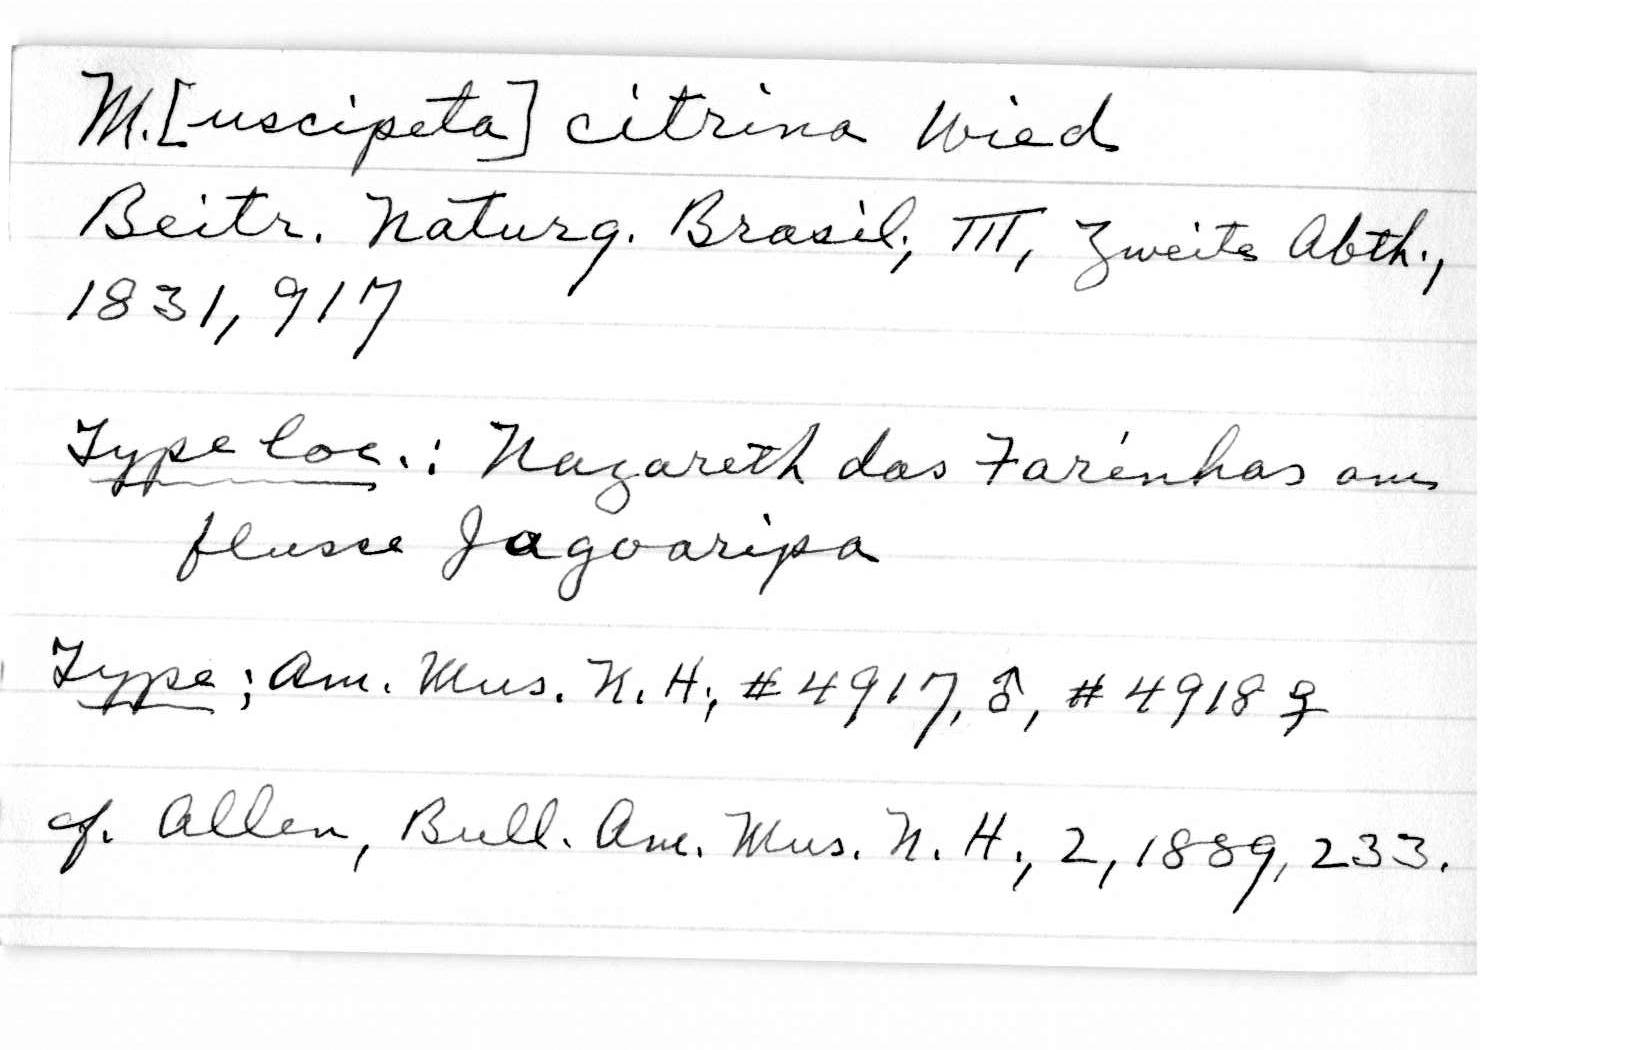 M.[uscipeta] citrina Wied
Beitr. Naturg. Brasil, III, Zweite Abth.,
1831, 917
Type loc.: Nazareth das Farinhas am
flusse Jagoaripa
Type; Am. Mus. N. H., #4917, ♂, #4918 ♀
cf. Allen, Bull. Am. Mus. N. H., 2, 1889, 233.